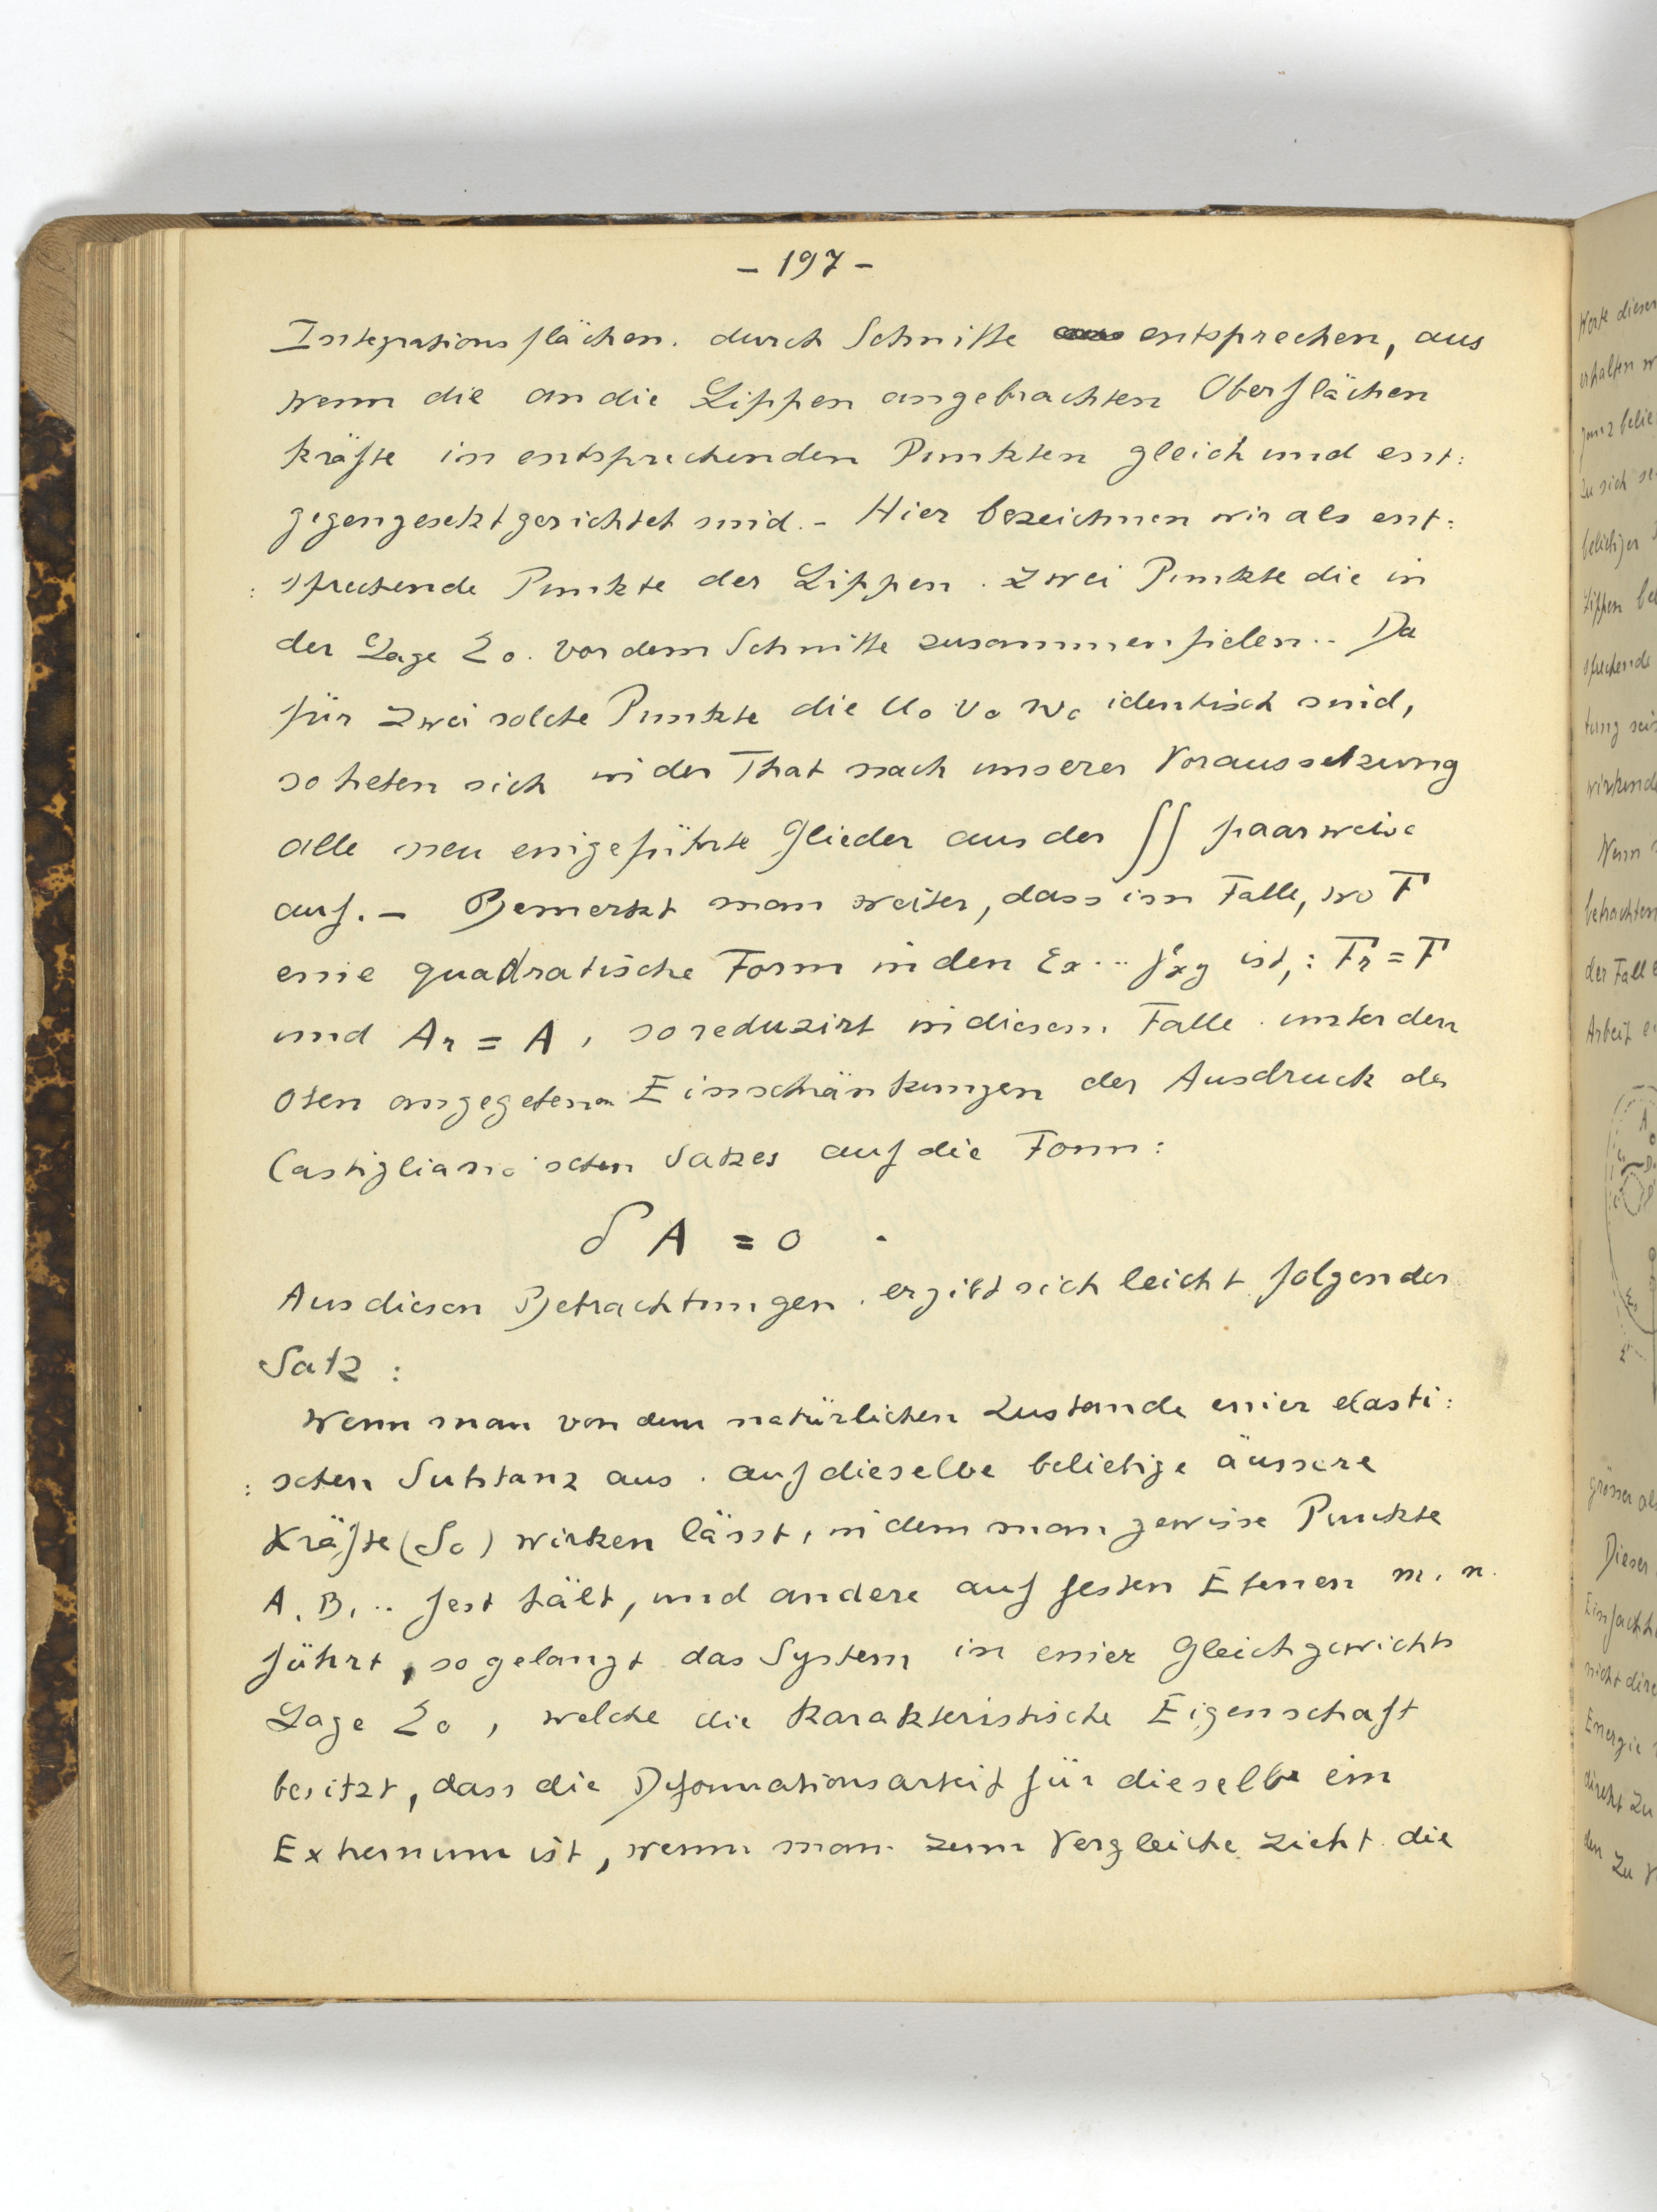 - 197 -
Integrationsflächen. durch Schnitte entsprechen, aus
wenn die an die Lippen angebrachten Oberflächen
kräfte in entsprechenden Punkten gleich und ent:
gegengesetzt gerichtet sind. - Hier bezeichnen wir als ent:
: sprechende Punkte der Lippen. zwei Punkte die in
der Lage Σo. vor dem Schnitte zusammenfielen.. Da
für zwei solche Punkte die u₀ v₀ w₀ identisch sind,
so heben sich in der That nach unserer Voraussetzung
alle neu eingeführte Glieder aus der ∫∫ paarweise
auf. - Bemerkt man weiter, dass im Falle, wo F
eine quadratische Form in den εx ... γxy ist,: Fr = F
und Ar = A, so reduzirt in diesem Falle. unter den
oben angegebenen Einschränkungen der Ausdruck des
Castigliano'schen Satzes auf die Form:
δ A = 0 .
Aus diesen Betrachtungen. ergibt sich leicht folgender
Satz :
Wenn man von dem natürlichen Zustande einer elasti:
: schen Substanz aus. auf dieselbe beliebige äussere
Kräfte (So) wirken lässt, in dem man gewisse Punkte
A, B, .. fest hält, und andere auf festen Ebenen m, n.
führt, so gelangt das System in einer Gleichgewichts
Lage Σo, welche die karakteristische Eigenschaft
besitzt, dass die Deformationsarbeit für dieselbe ein
Extremum ist, wenn man zum Vergleiche zieht die
Werte dieser
erhalten
ganz belie
zu sich
beliebiger
Lippen
sprechende
tung
wirkende
Wenn
betrachten
der Fall
Arbeit
grösser als
Dieser
Einfachh
nicht dire
Energie
direkt zu
den zu